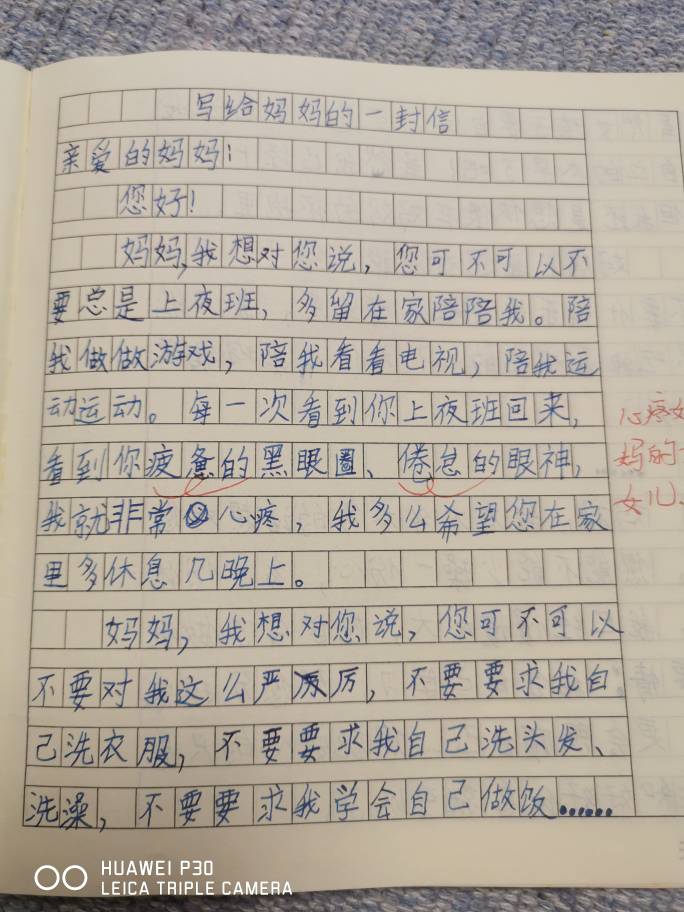 写给妈妈的一封信
亲爱的妈妈：
您好！
妈妈，我想对您说，您可不可以不
要总是上夜班，多留在家陪陪我。陪
我做做游戏，陪我看看电视，陪我运
动运动。每一次看到你上夜班回来，
看到你疲惫的黑眼圈、倦怠的眼神，
我就非常心疼，我多么希望您在家
里多休息几晚上。
妈妈，我想对您说，您可不可以
不要对我这么严厉，不要要求我自
己洗衣服，不要要求我自己洗头发、
洗澡，不要要求我学会自己做饭……
心疼
妈的
女儿
HUAWEI P30
LEICA TRIPLE CAMERA